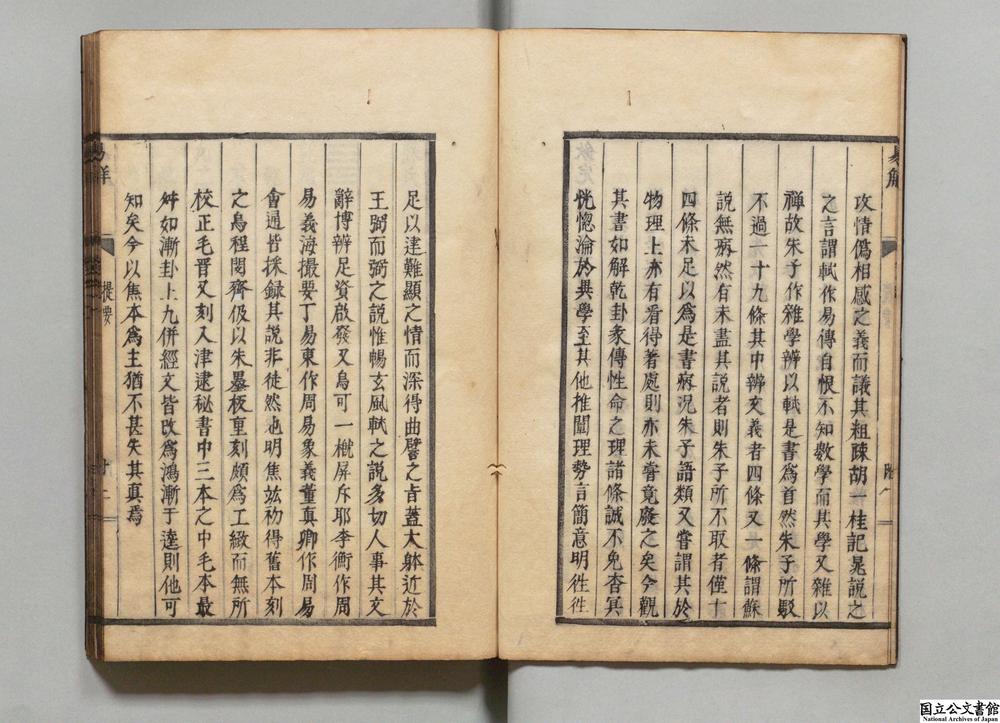 攻情僞相感之義而議其粗疎胡一桂記晁說之
之言謂軾作易傳自恨不知數學而其學又雜以
禪故朱子作雜學辨以軾是書爲首然朱子所駁
不過一十九條其中辨文義者四條又一條謂蘇
說無病然有未盡其說者則朱子所不取者僅十
四條未足以爲是書病況朱子語類又嘗謂其於
物理上亦有看得著處則亦未嘗竟廢之矣今觀
其書如解乾卦彖傳性命之理諸條誠不免杳冥
恍惚淪於異學至其他推闡理勢言簡意明徃徃
足以達難顯之情而深得曲譬之旨蓋大躰近於
王弼而弼之說惟暢玄風軾之說多切人事其文
辭博辨足資啟發又烏可一槪屏斥耶李衡作周
易義海撮要丁易東作周易象義董真卿作周易
會通皆採録其說非徒然也明焦竑初得舊本刻
之烏程閔齊伋以朱墨板重刻頗爲工緻而無所
校正毛晋又刻入津逮秘書中三本之中毛本最
舛如漸卦上九併經文皆改爲鴻漸于逵則他可
知矣今以焦本爲主猶不甚失其真焉
提要
十二
国立公文書館
National Archives of Japan